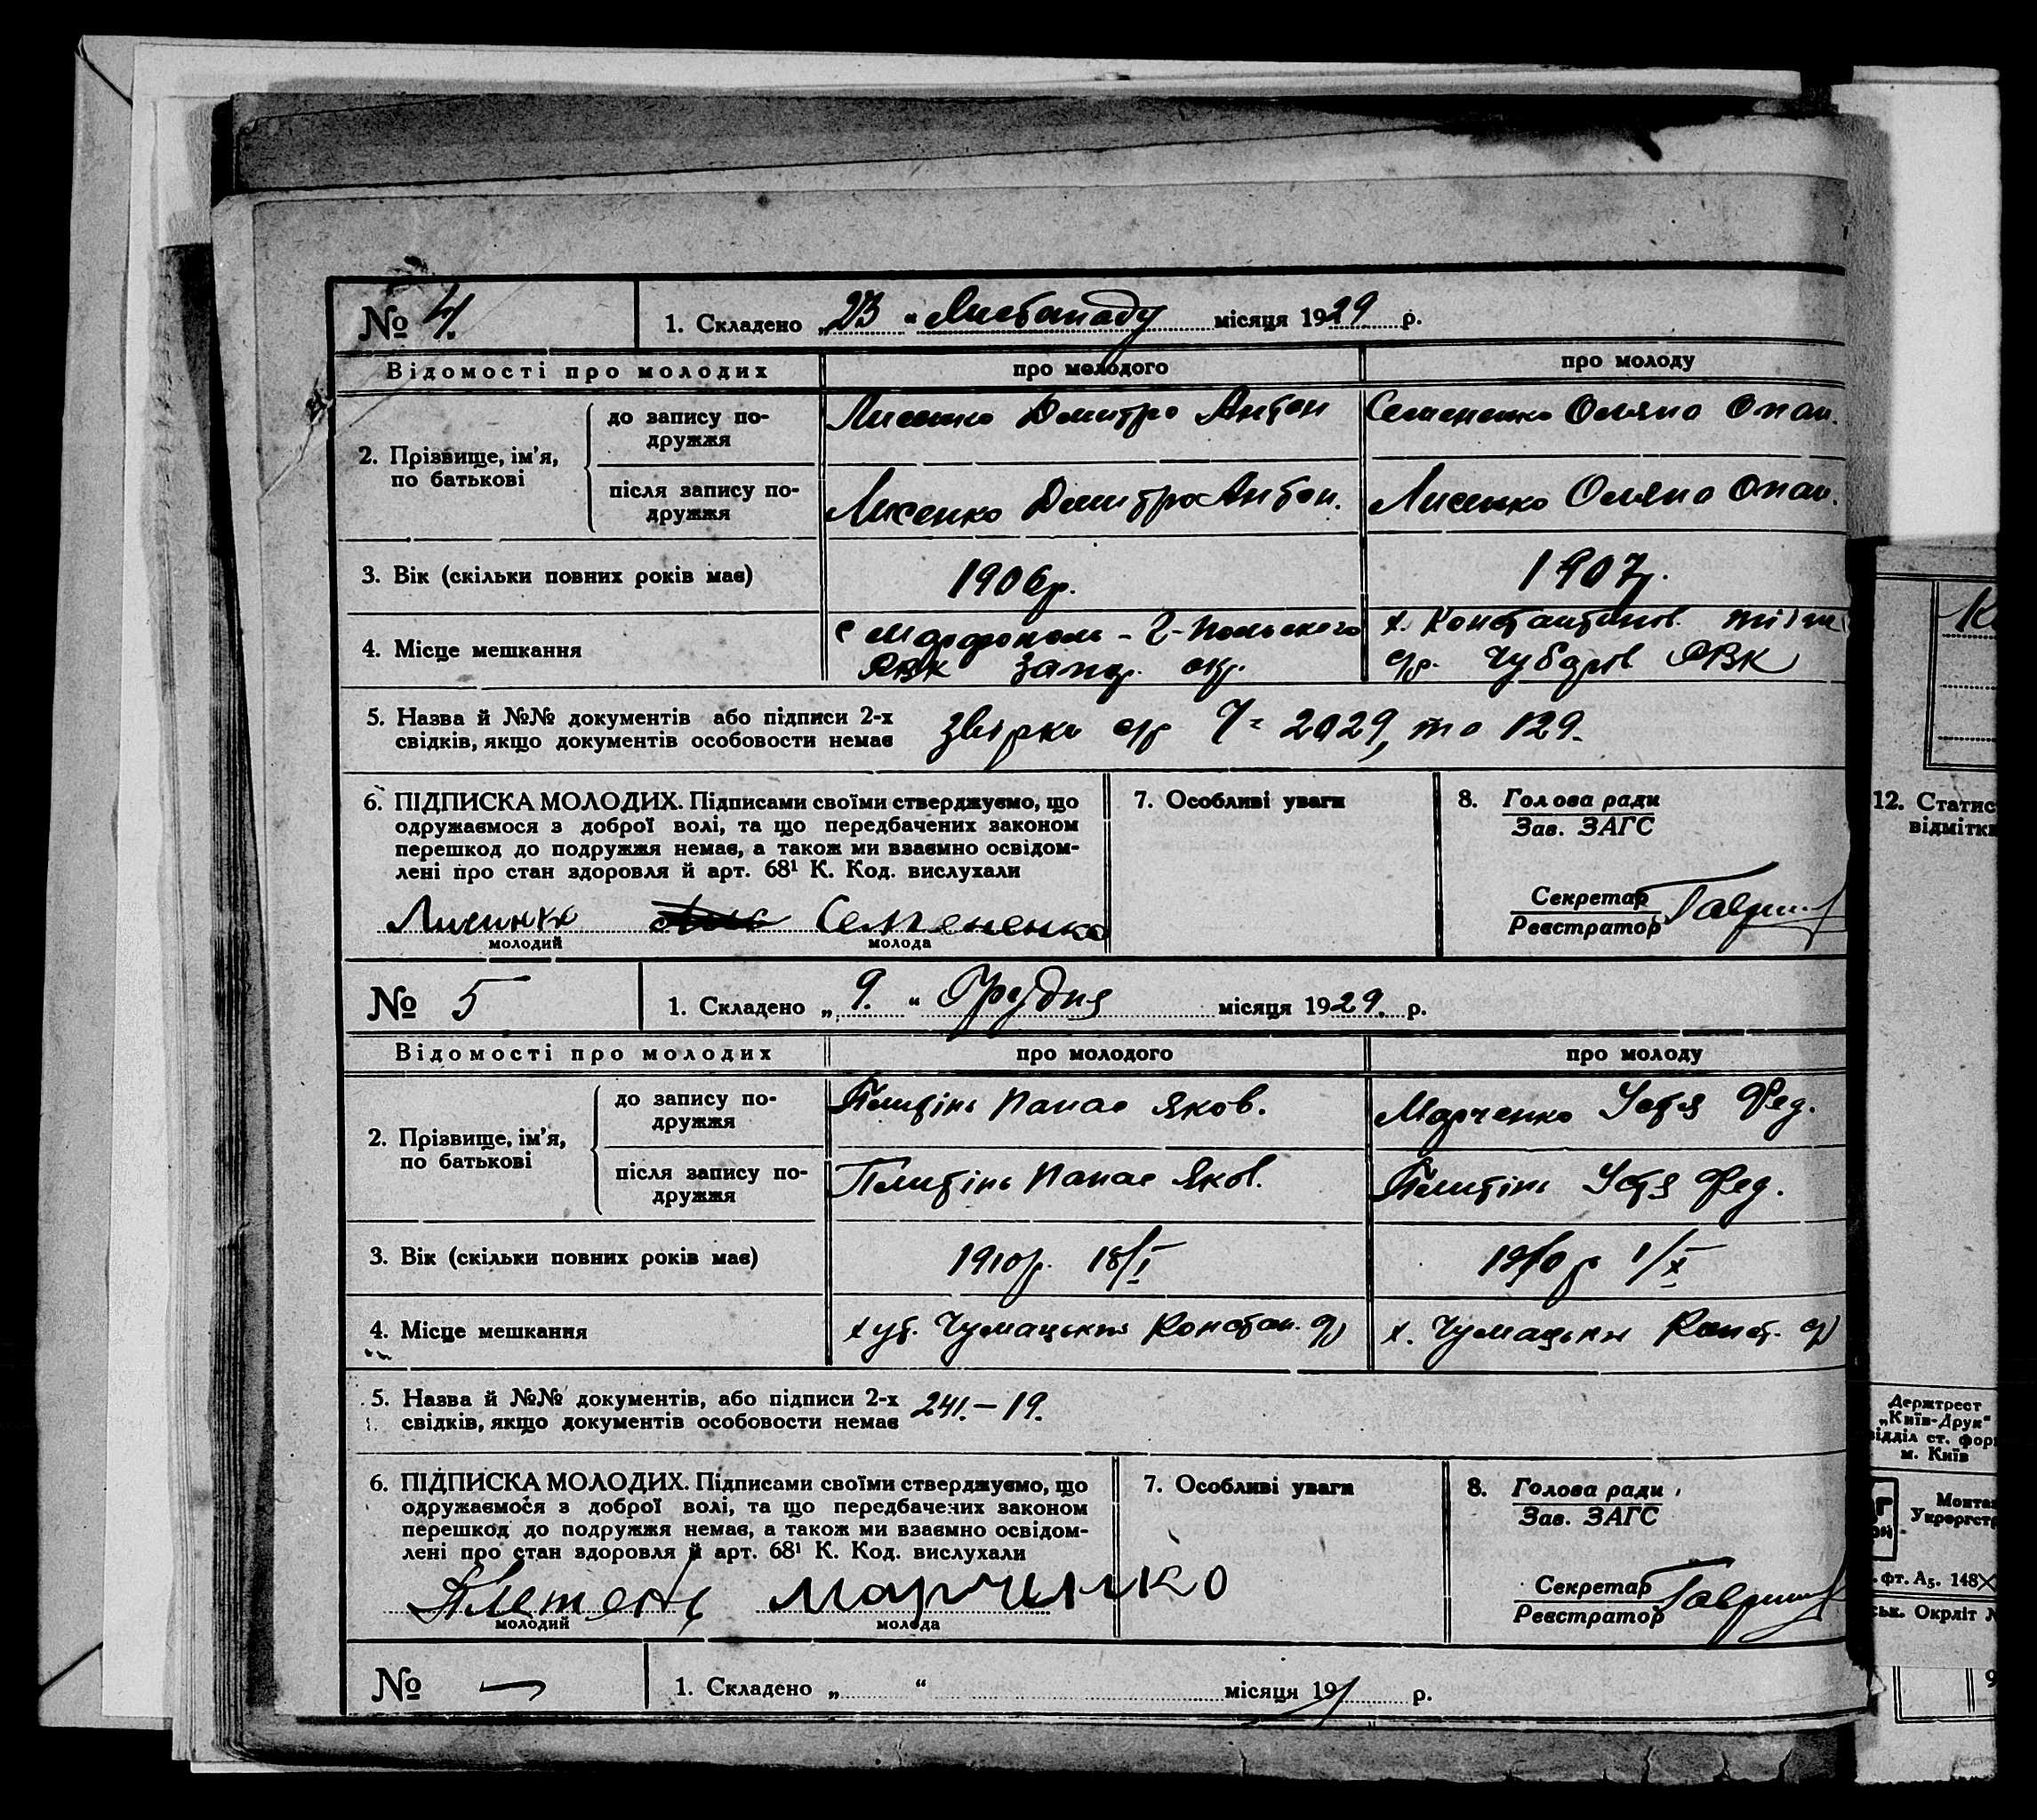 № 4. 1. Складено „23“ Листопаду місяця 1929 р.
Відомості про молодих про молодого про молоду
2. Прізвище, ім'я, по батькові
до запису по-
дружжя
Лисенко Дмитро Антон
Семененко Оляна Опан.
після запису по-
дружжя
Лисенко Дмитро Антон.
Лисенко Оляна Опан.
3. Вік (скільки повних років має) 1906р. 1907р.
4. Місце мешкання
с Марфополь - Г-Польського
РВК Запор. окр.
х. Константинов.
с/р. Чубарів РВК
5. Назва й №№ документів або підписи 2-х
свідків, якщо документів особовости немає
Звірка с/р Ч= 2029, та 129.
6. ПІДПИСКА МОЛОДИХ. Підписами своїми стверджуємо, що
одружаємося з доброї волі, та що передбачених законом
перешкод до подружжя немає, а також ми взаємно освідом-
лені про стан здоровля й арт. 68¹ К. Код. вислухали
Лисинко Семененко
молодий молода
7. Особливі уваги
8. Голова ради
Зав. ЗАГС
Секретар
Реєстратор
№ 5 1. Складено „9.“ Грудня місяця 1929. р.
Відомості про молодих про молодого про молоду
2. Прізвище, ім'я,
по батькові
до запису по-
дружжя
Плитінь Панас Яков.
Марченко Устя Фед.
після запису по-
дружжя
Плитінь Панас Яков.
Плитінь Устя Фед.
3. Вік (скільки повних років має) 1910р. 18/I 1910р 1/X
4. Місце мешкання хут. Чумацький Констан. с/р х. Чумацький Конст. с/р
5. Назва й №№ документів, або підписи 2-х
свідків, якщо документів особовости немає
241. – 19.
6. ПІДПИСКА МОЛОДИХ. Підписами своїми стверджуємо, що
одружаємося з доброї волі, та що передбачених законом
перешкод до подружжя немає, а також ми взаємно освідом-
лені про стан здоровля й арт. 68¹ К. Код. вислухали
Плетень Марченко
молодий молода
7. Особливі уваги
8. Голова ради
Зав. ЗАГС
Секретар
Реєстратор
№ – 1. Складено „ “ місяця 19 р.
12. Статис
відмітки
Держтрест
„Київ-Друк“
відділ ст. фор
м. Київ
Монта
Укроргст
фт. А₅. 148×
ськ. Окрліт №
9